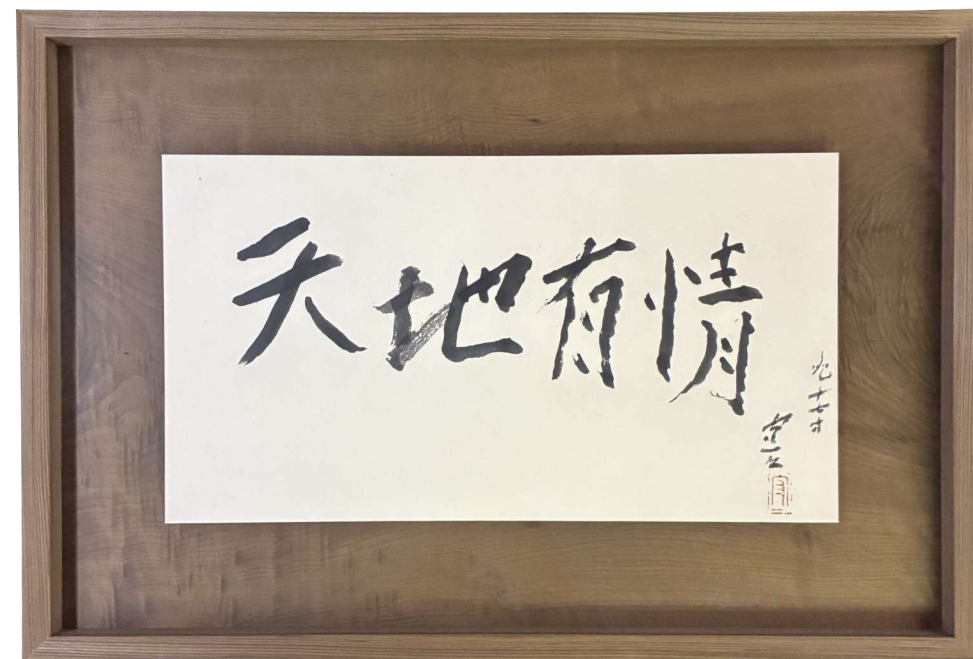 天地有情
九十七才
憲二